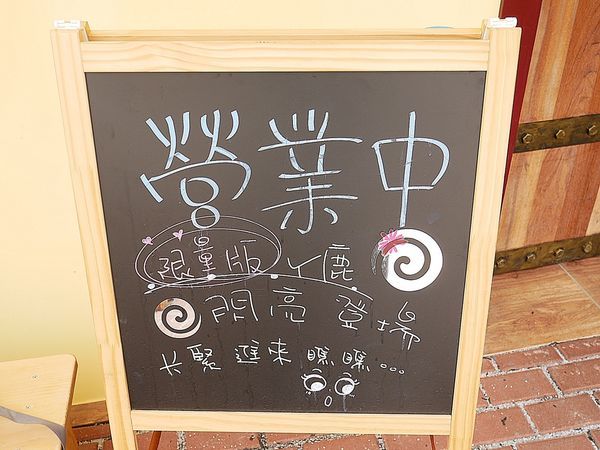 營業中
限量版ㄚ鹿
閃亮登場
长緊進來瞧瞧...